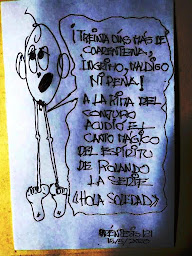 ¡TREINTA DÍAS MÁS DE
CUARENTENA,
ÍNGRIMO, MALDIGO
MI PENA!
A LA RIMA DEL
CONJURO
ACUDIÓ EL
CANTO MÁGICO
DEL ESPÍRITU
DE ROLANDO
LA SERIE
«HOLA SOLEDAD»